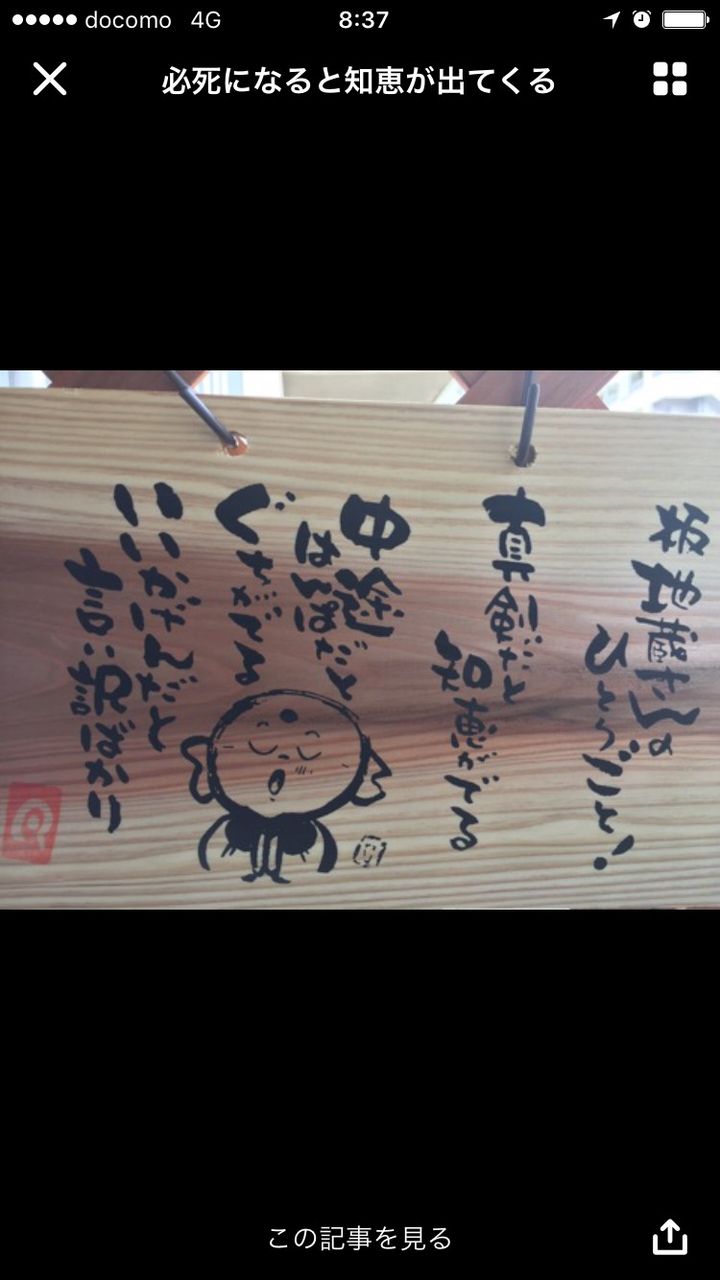 docomo 4G 8:37
必死になると知恵が出てくる
坂地蔵さんの
ひとりごと!
真剣だと
知恵がでる
中途はんぱだと
ぐちがでる
いいかげんだと
言い訳ばかり
この記事を見る